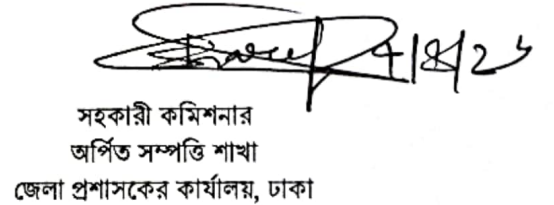 সহকারী কমিশনার
অর্পিত সম্পত্তি শাখা
জেলা প্রশাসকের কার্যালয়, ঢাকা